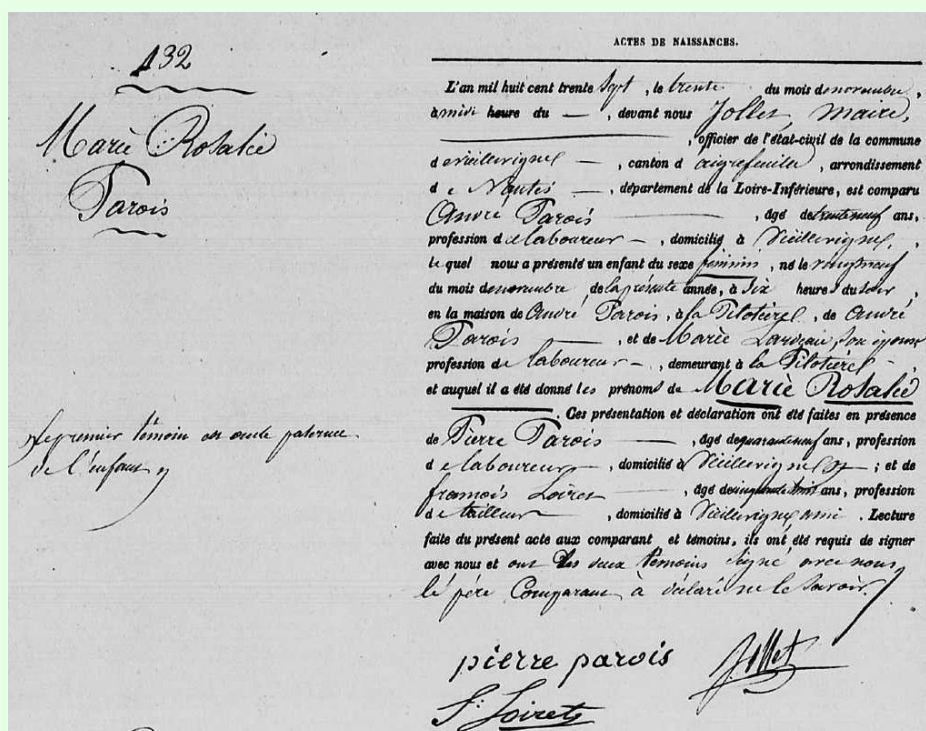 132
Marie Rosalie
Parois
Le premier témoin est oncle paternel
de l'enfant
ACTES DE NAISSANCES.
L'an mil huit cent trente sept, le trente du mois de novembre,
à midi heure du —, devant nous Jollet, maire,
, officier de l'état-civil de la commune
d e vieillevigne —, canton d'aigrefeuille, arrondissement
d e Nantes —, département de la Loire-Inférieure, est comparu
André Parois —, âgé de trente neuf ans,
profession d e laboureur —, domicilié à Vieillevigne,
le quel nous a présenté un enfant du sexe féminin, né le vingt neuf
du mois de novembre de la présente année, à six heures du soir,
en la maison de André Parois, à la Pilotière, de André
Parois —, et de Marie Lardeau son épouse
profession de laboureur —, demeurant à la Pilotière —
et auquel il a été donné les prénoms de Marie Rosalie
—. Ces présentation et déclaration ont été faites en présence
de Pierre Parois —, âgé de quarante neuf ans, profession
d e laboureur —, domicilié à Vieillevigne ; et de
françois Loiret —, âgé de cinquante ans, profession
de tailleur —, domicilié à Vieillevigne, ami. Lecture
faite du présent acte aux comparant et témoins, ils ont été requis de signer
avec nous et ont les deux témoins signé avec nous,
le père Comparant à déclaré ne le savoir.
pierre parois Jollet
f. Loiret